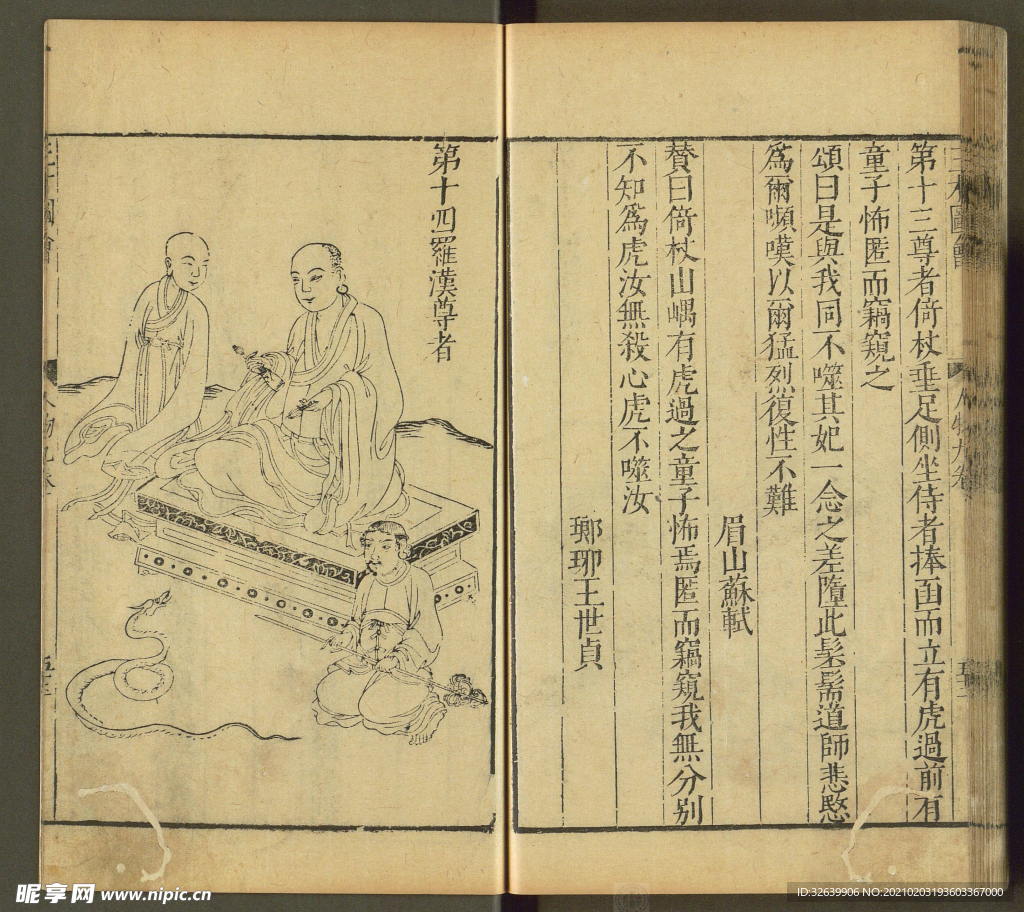 第十三尊者倚杖垂足側坐侍者捧函而立有虎過前有
童子怖匿而竊窺之
頌曰是與我同不噬其妃一念之差墮此髬髵道師悲愍
為爾嚬嘆以爾猛烈復性不難
眉山蘇軾
贊曰倚杖山嵎有虎過之童子怖焉匿而竊窺我無分别
不知為虎汝無殺心虎不噬汝
瑯琊王世貞
第十四羅漢尊者
昵享网 www.nipic.cn
ID:32639906 NO:20210203193603367000